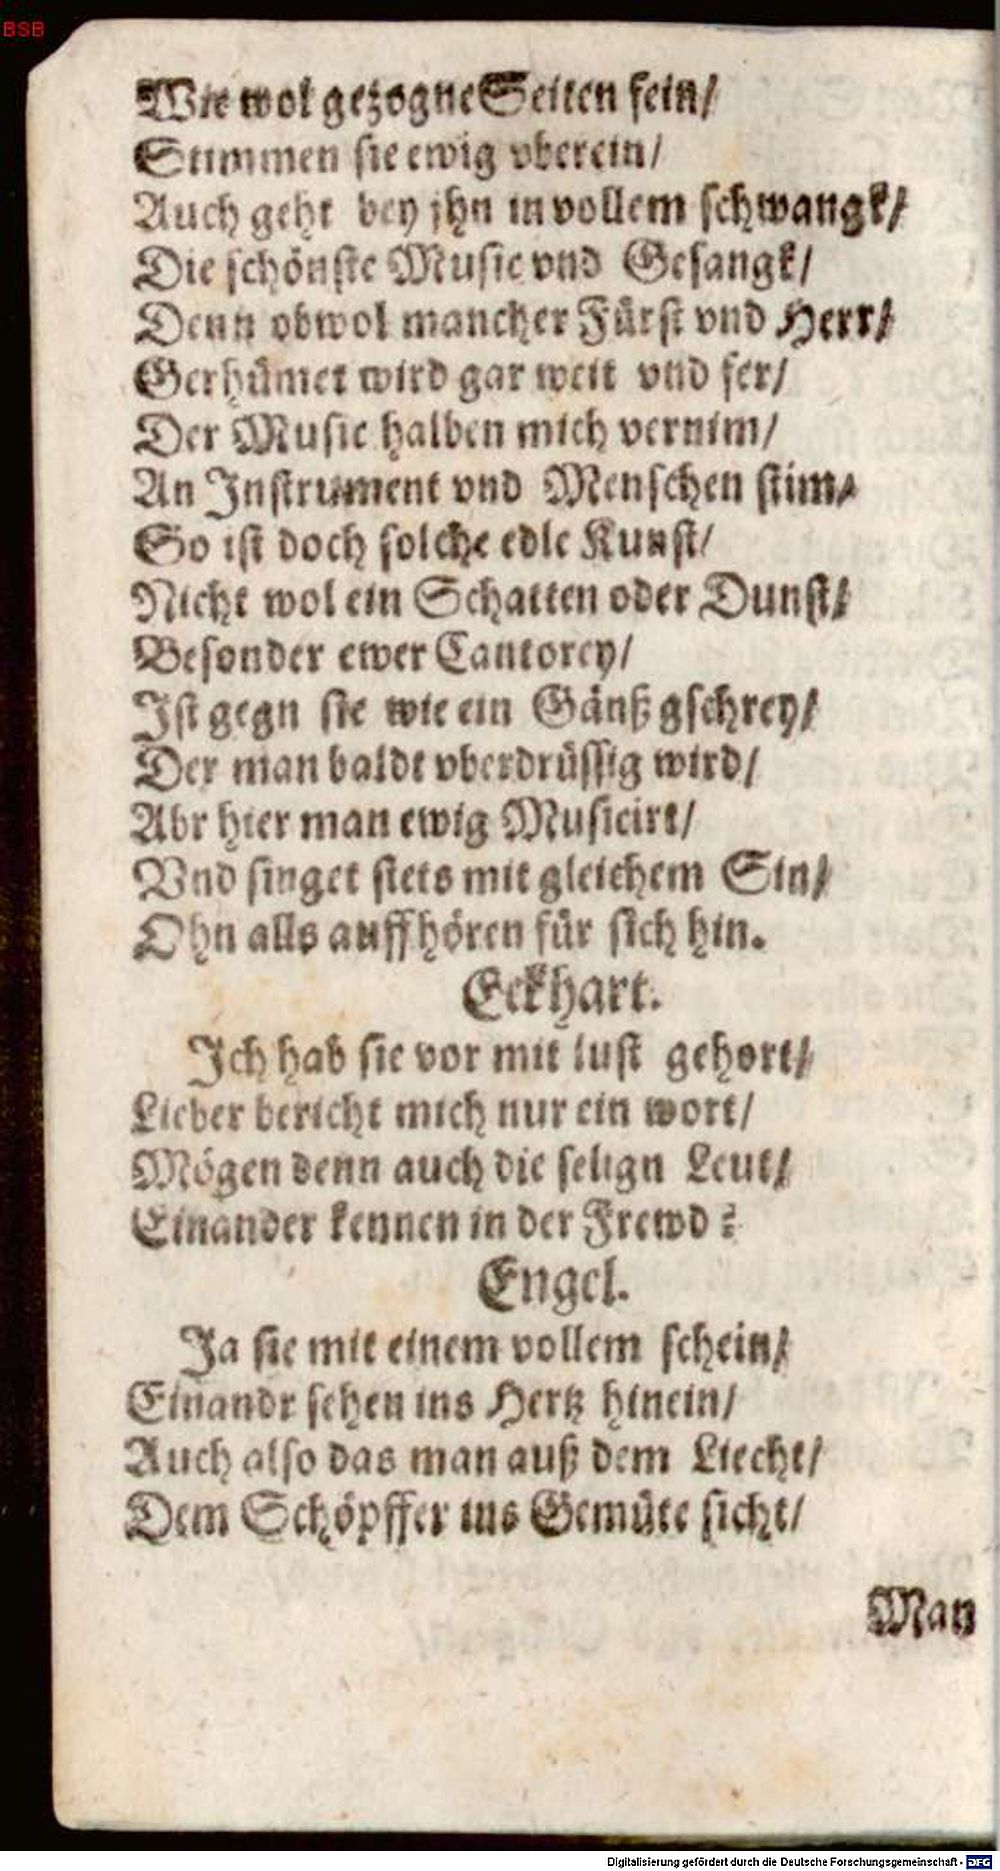 BSB
Wie wol gezogne Seiten fein/
Stimmen sie ewig vberein/
Auch geht bey jhn in vollem schwangk/
Die schönste Music vnd Gesangk/
Denn obwol mancher Fürst vnd Herr/
Gerhümet wird gar weit vnd fer/
Der Music halben mich vernim/
An Instrument vnd Menschen stim/
So ist doch solche edle Kunst/
Nicht wol ein Schatten oder Dunst/
Besonder ewer Cantorey/
Ist gegn sie wie ein Gänß gschrey/
Der man baldt vberdrüssig wird/
Abr hier man ewig Musicirt/
Vnd singet stets mit gleichem Sin/
Ohn alls auffhören für sich hin.
Eckhart.
Ich hab sie vor mit lust gehort/
Lieber bericht mich nur ein wort/
Mögen denn auch die selign Leut/
Einander kennen in der Frewd?
Engel.
Ja sie mit einem vollem schein/
Einandr sehen ins Hertz hinein/
Auch also das man auß dem Liecht/
Dem Schöpffer ins Gemüte sicht/
Man
Digitalisierung gefördert durch die Deutsche Forschungsgemeinschaft - DFG